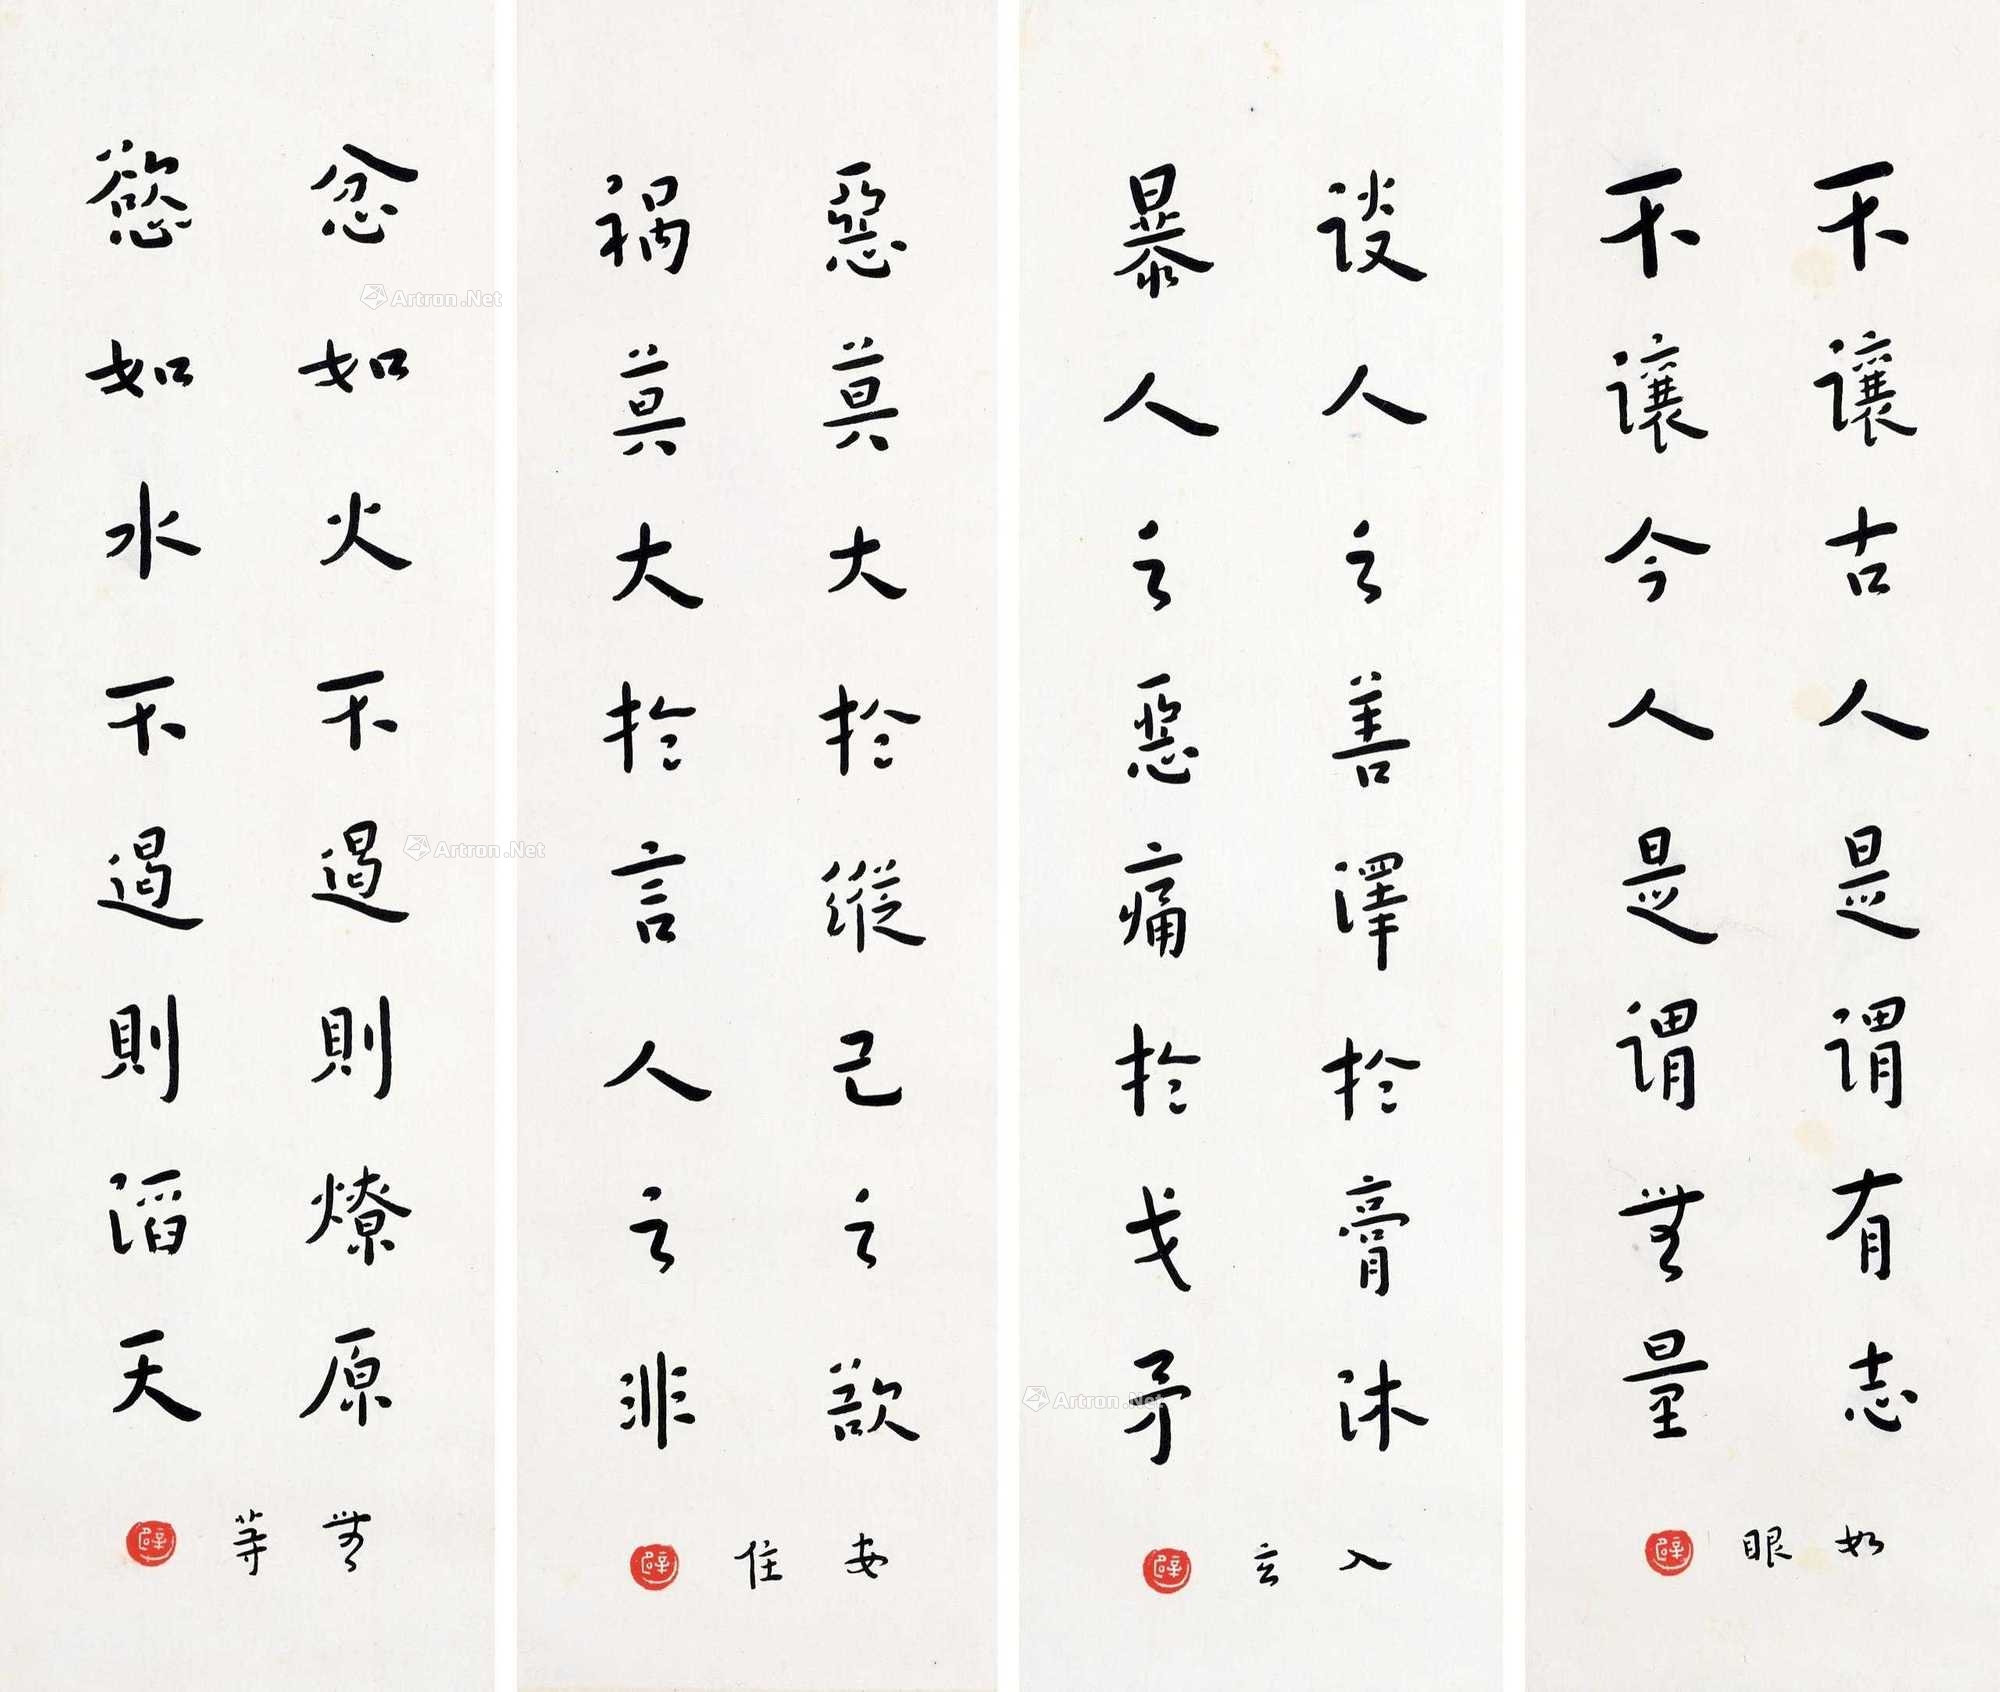 不讓古人是謂有志
不讓今人是謂無量
如眼
談人之善澤於膏沐
暴人之惡痛於戈矛
入玄
惡莫大於縱己之欲
禍莫大於言人之非
安住
忿如火不遏則燎原
慾如水不遏則滔天
無等
Artron.Net
Artron.Net
Artron.Net